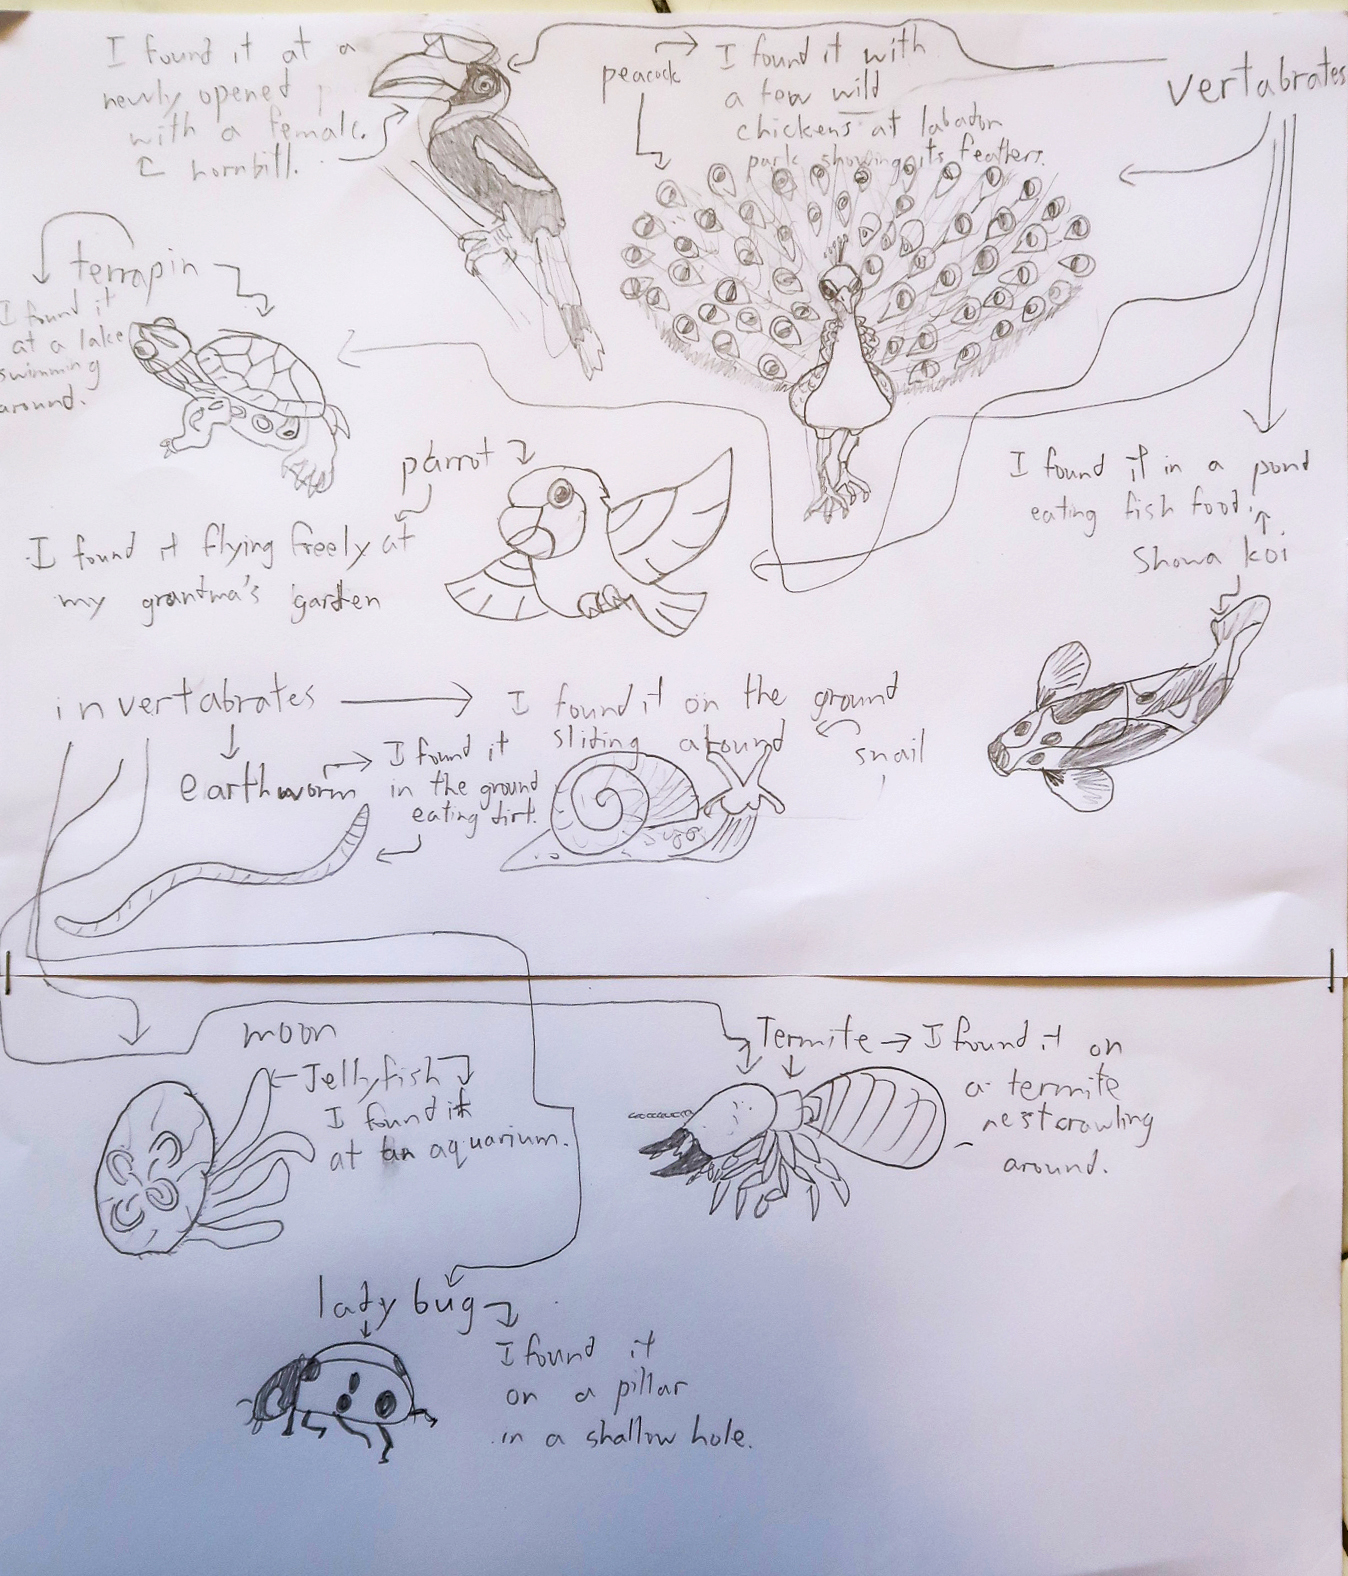 I found it at a
newly opened
with a female.
hornbill.
peacock
I found it with
a few wild
chickens at labador
park showing its feathers.
vertabrates
terrapin
I found it
at a lake
swimming
around.
parrot
I found it flying freely at
my grantma's garden
I found it in a pond
eating fish food.
Showa koi
invertabrates
I found it on the ground
sliding around
snail
earthworm
I found it
in the ground
eating dirt.
moon
Jellyfish
I found it
at an aquarium.
Termite
I found it on
a termite
nest crawling
around.
lady bug
I found it
on a pillar
in a shallow hole.